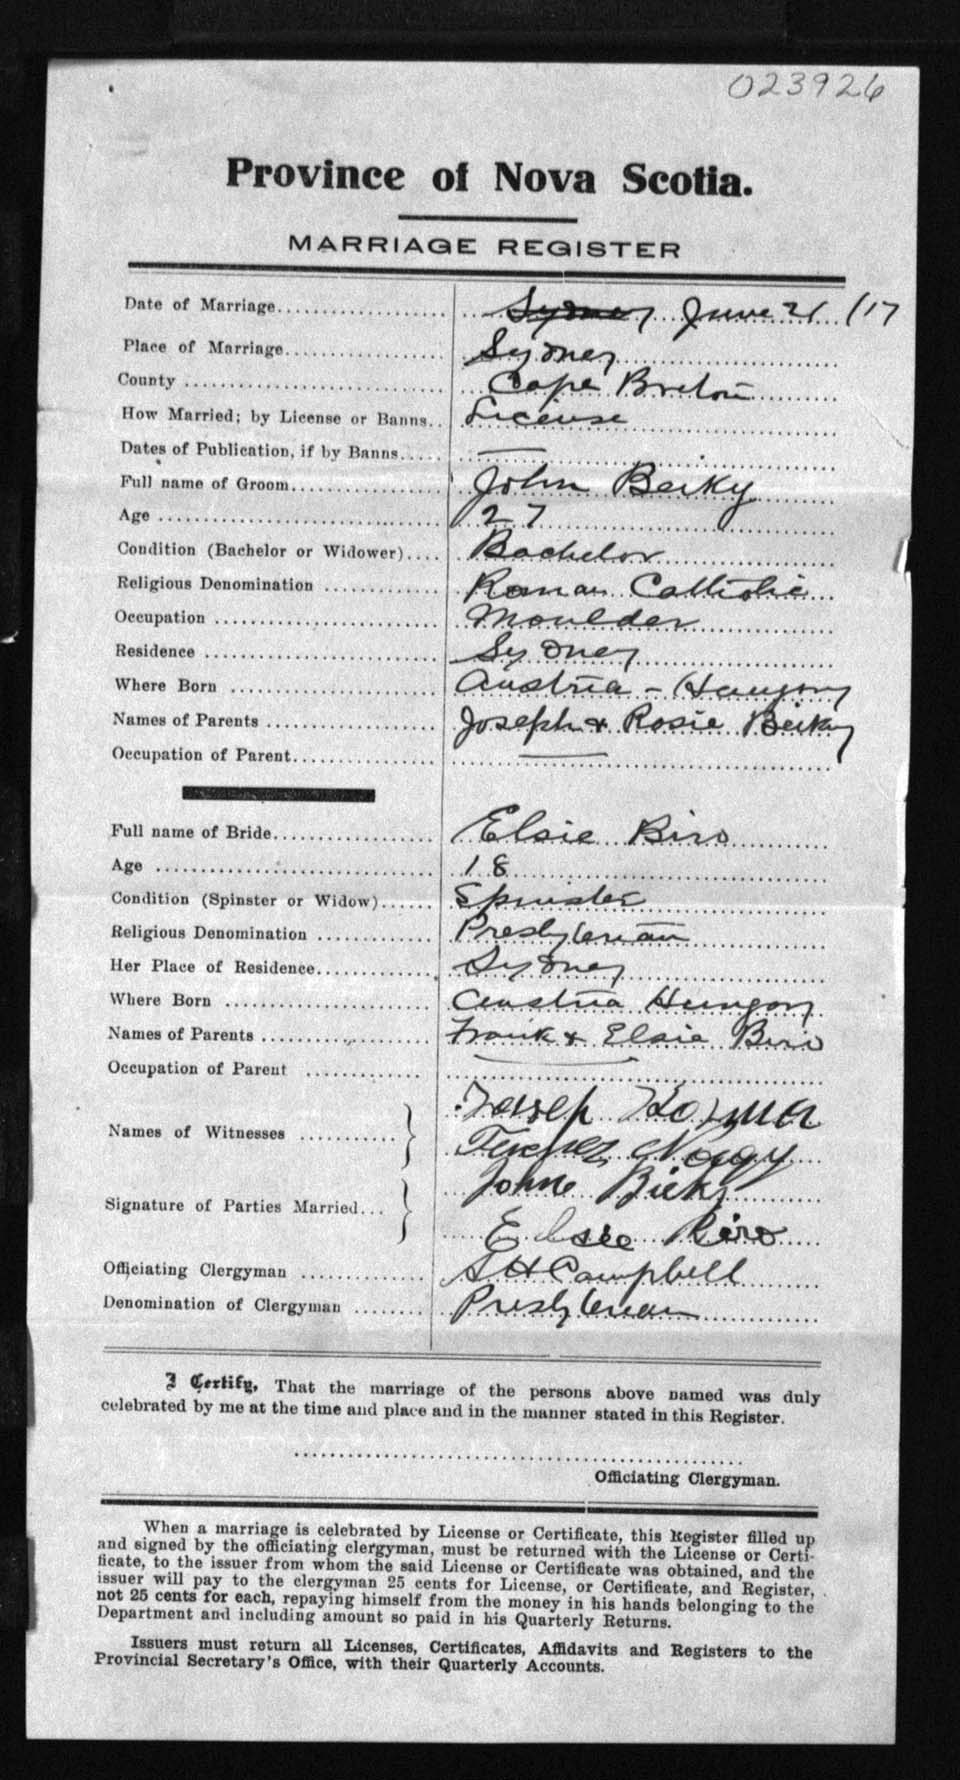 023926
Province of Nova Scotia.
MARRIAGE REGISTER
Date of Marriage Sydney June 21 /17
Place of Marriage Sydney
County Cape Breton
How Married; by License or Banns License
Dates of Publication, if by Banns —
Full name of Groom John Beiky
Age 27
Condition (Bachelor or Widower) Bachelor
Religious Denomination Roman Catholic
Occupation Moulder
Residence Sydney
Where Born Austria - Hungary
Names of Parents Joseph & Rosie Beiky
Occupation of Parent —
Full name of Bride Elsie Biro
Age 18
Condition (Spinster or Widow) Spinster
Religious Denomination Presbyterian
Her Place of Residence Sydney
Where Born Austria Hungary
Names of Parents Frank & Elsie Biro
Occupation of Parent —
Names of Witnesses
Nagy
Signature of Parties Married John
Elsie Biro
Officiating Clergyman A H Campbell
Denomination of Clergyman Presbyterian
I Certify, That the marriage of the persons above named was duly
celebrated by me at the time and place and in the manner stated in this Register.
Officiating Clergyman.
When a marriage is celebrated by License or Certificate, this Register filled up
and signed by the officiating clergyman, must be returned with the License or Certi-
ficate, to the issuer from whom the said License or Certificate was obtained, and the
issuer will pay to the clergyman 25 cents for License, or Certificate, and Register,
not 25 cents for each, repaying himself from the money in his hands belonging to the
Department and including amount so paid in his Quarterly Returns.
Issuers must return all Licenses, Certificates, Affidavits and Registers to the
Provincial Secretary's Office, with their Quarterly Accounts.